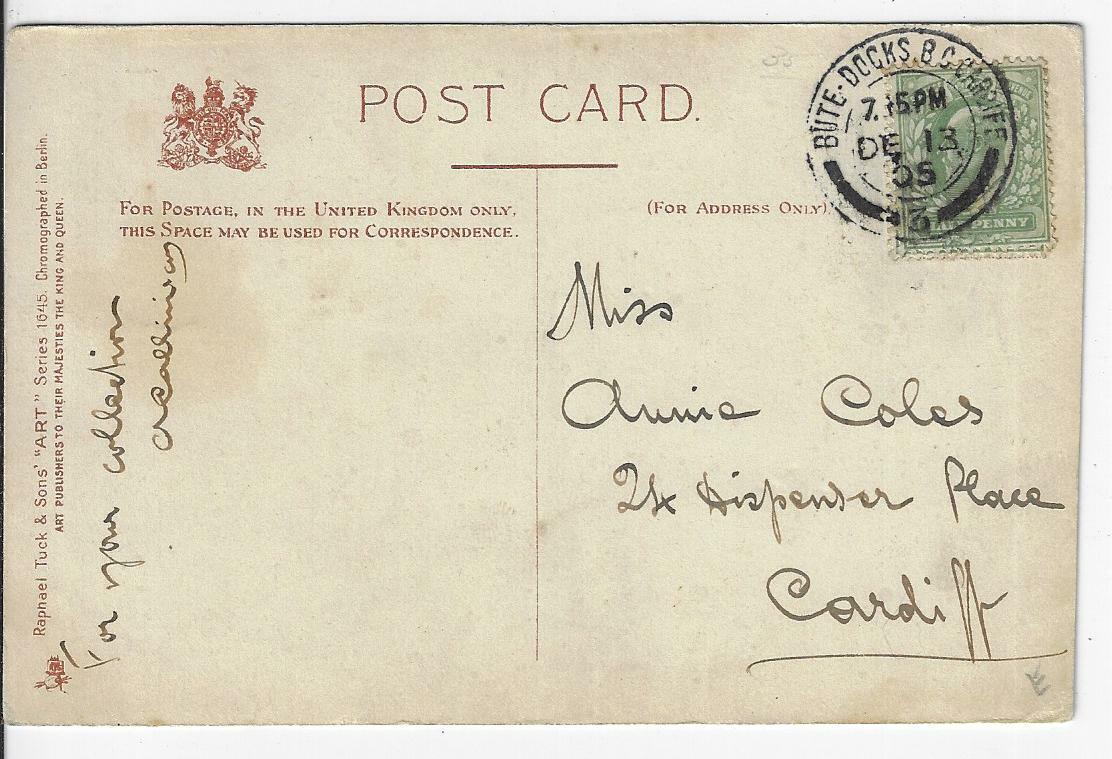 POST CARD.
FOR POSTAGE, IN THE UNITED KINGDOM ONLY,
THIS SPACE MAY BE USED FOR CORRESPONDENCE.
(FOR ADDRESS ONLY)
BUTE-DOCKS.B.O.CARDIFF
7.15PM
DE 13
05
3
PENNY
Raphael Tuck & Sons' "ART" Series 1645. Chromographed in Berlin.
ART PUBLISHERS TO THEIR MAJESTIES THE KING AND QUEEN.
For your collection
Miss
Annie Coles
24 Dispenser Place
Cardiff